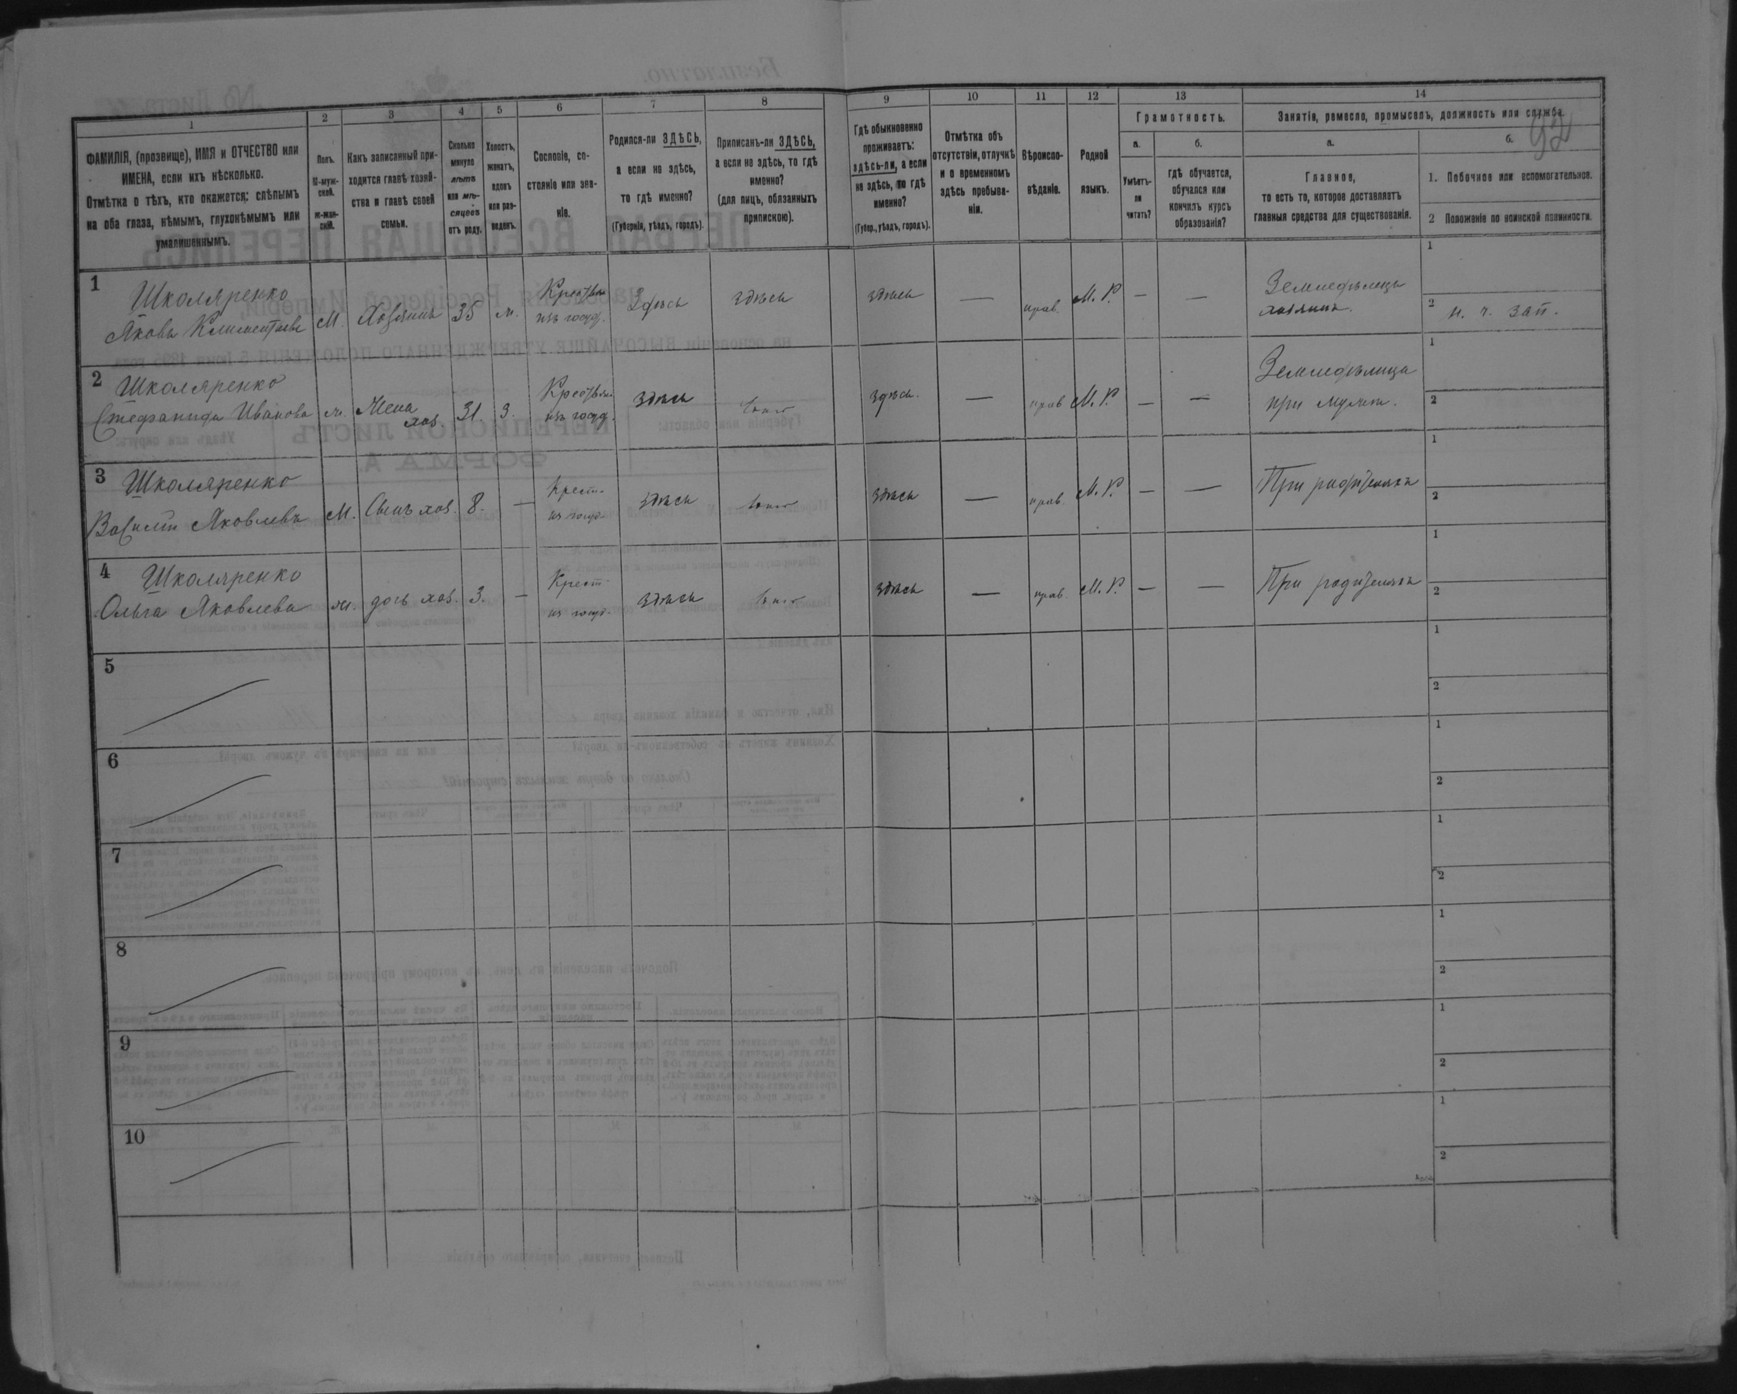 92
1
2
3
4
5
6
7
8
9
10
11
12
13
14
ФАМИЛІЯ, (прозвище), ИМЯ и ОТЧЕСТВО или
ИМЕНА, если ихъ нѣсколько.
Отмѣтка о тѣхъ, кто окажется: слѣпымъ
на оба глаза, нѣмымъ, глухонѣмымъ или
умалишеннымъ.
Полъ.
М-муж-
ской.
ж-жен-
скій.
Какъ записанный при-
ходится главѣ хозяй-
ства и главѣ своей
семьи.
Сколько
минуло
лѣтъ
или мѣ-
сяцевъ
отъ роду.
Холостъ,
женатъ,
вдовъ
или раз-
веденъ.
Сословіе, со-
стояніе или зва-
ніе.
Родился-ли ЗДѢСЬ,
а если не здѣсь,
то гдѣ именно?
(Губернія, уѣздъ, городъ).
Приписанъ-ли ЗДѢСЬ,
а если не здѣсь, то гдѣ
именно?
(для лицъ, обязанныхъ
припискою).
Гдѣ обыкновенно
проживаетъ:
здѣсь-ли, а если
не здѣсь, то гдѣ
именно?
(Губер., уѣздъ, городъ).
Отмѣтка объ
отсутствіи, отлучкѣ
и о временномъ
здѣсь пребыва-
ніи.
Вѣроиспо-
вѣданіе.
Родной
языкъ.
Грамотность.
а.
Умѣетъ-
ли
читать?
б.
гдѣ обучается,
обучался или
кончилъ курсъ
образованія?
Занятіе, ремесло, промыселъ, должность или служба.
а.
Главное,
то есть то, которое доставляетъ
главныя средства для существованія.
б.
1. Побочное или вспомогательное.
2 Положеніе по воинской повинности.
1 Школяренко
Яковъ Климентіевъ М. Хозяинъ 35 ж. Крестьян. изъ госуд. Здѣсь здѣсь здѣсь — прав. М. Р. — — Земледѣлецъ хозяинъ.
1
2 н. ч. зап.
2 Школяренко
Стефанида Иванова ж. Жена хоз. 31 з. Крестьян. изъ госуд. здѣсь здѣсь. — прав М. Р. — — Земледѣлица при мужѣ.
1
2
3 Школяренко
Василій Яковлевъ М. Сынъ хоз. 8. — Крест. из госуд. здѣсь здѣсь — прав М. Р. — — При родителяхъ
1
2
4 Школяренко
Ольга Яковлева ж. дочь хоз. 3. — Крест. из госуд. здѣсь здѣсь — прав. М. Р. — — При родителяхъ
1
2
5
1
2
6
1
2
7
1
2
8
1
2
9
1
2
10
1
2